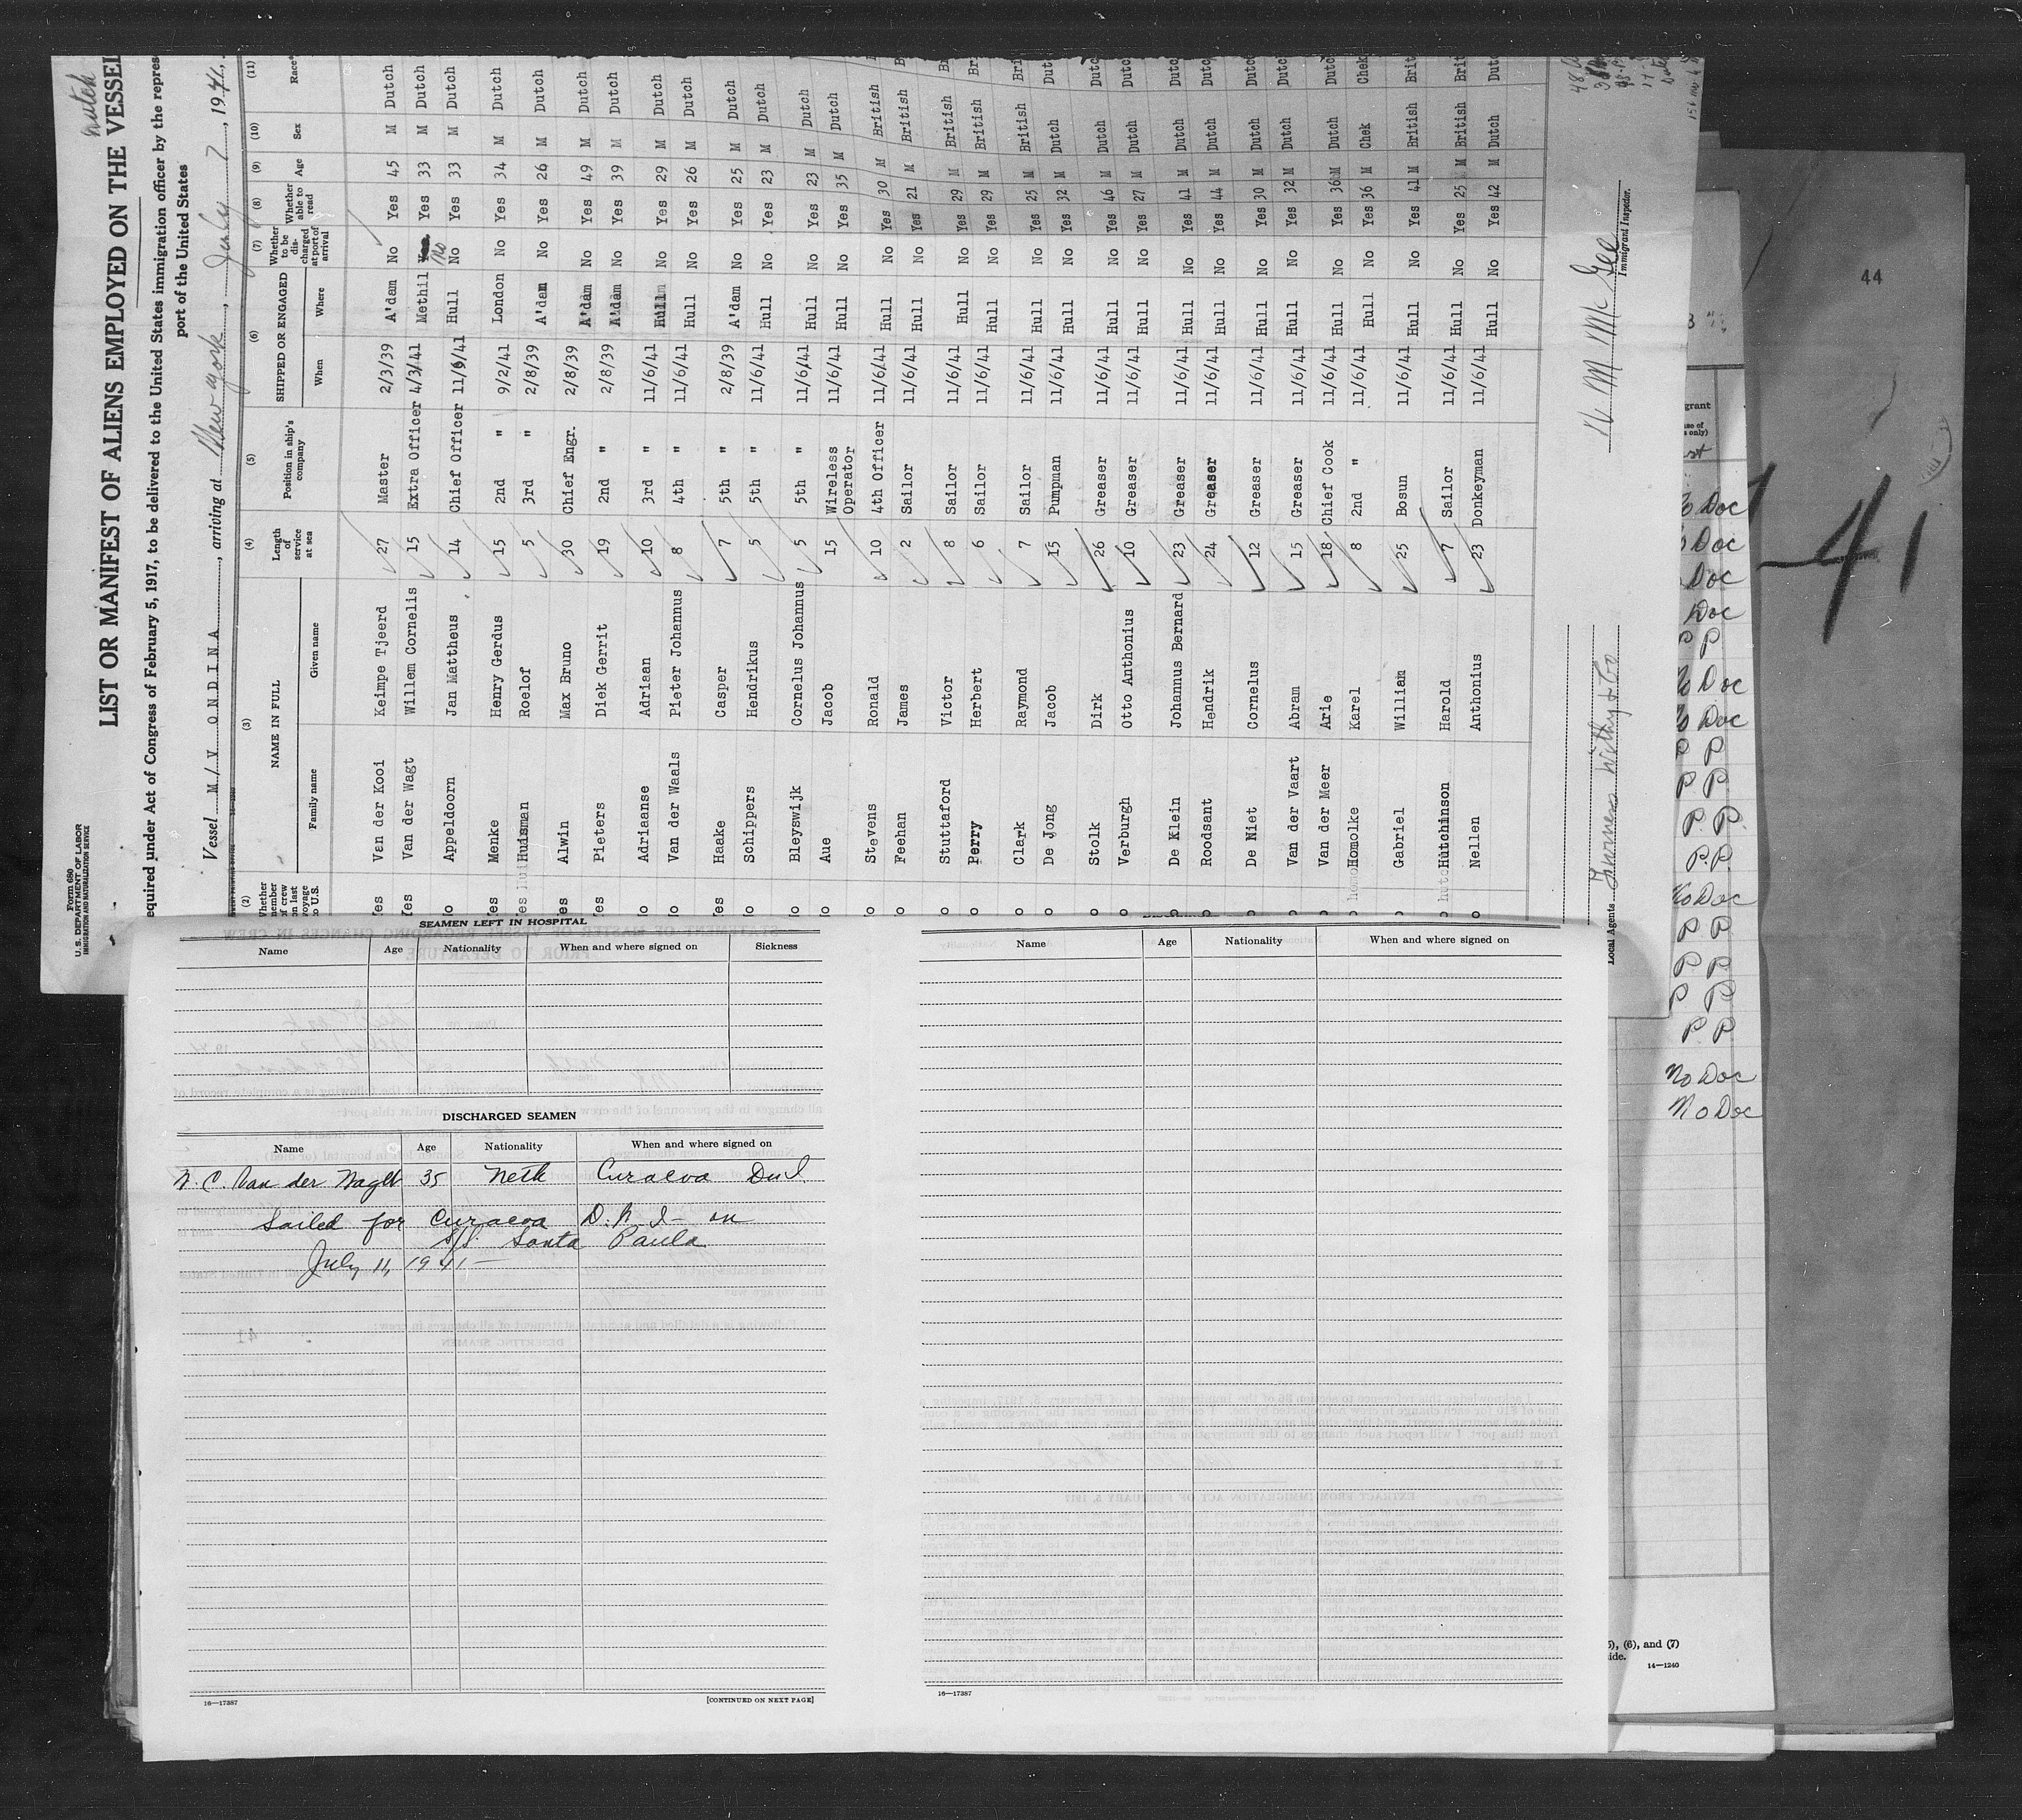 Form 680
U.S. DEPARTMENT OF LABOR
IMMIGRATION AND NATURALIZATION SERVICE
Dutch
LIST OR MANIFEST OF ALIENS EMPLOYED ON THE VESSEL
equired under Act of Congress of February 5, 1917, to be delivered to the United States immigration officer by the repres
port of the United States
Vessel M/V ONDINA, arriving at New York, July 7, 1941.
(2) (3) (4) (5) (6) (7) (8) (9) (10) (11)
Whether member of crew on last voyage to U.S. NAME IN FULL Length of service at sea Position in ship's company SHIPPED OR ENGAGED Whether to be discharged at port of arrival Whether able to read Age Sex Race*
Family name Given name When Where
es Van der Kooi Keimpe Tjeerd 27 Master 2/3/39 A'dam No Yes 45 M Dutch
es Van der Wagt Willem Cornelis 15 Extra Officer 4/3/41 Methil No Yes 33 M Dutch
o Appeldoorn Jan Mattheus 14 Chief Officer 11/6/41 Hull No Yes 33 M Dutch
es Menke Henry Gerdus 15 2nd " 9/2/41 London No Yes 34 M Dutch
es Huisman Roelof 5 3rd " 2/8/39 A'dam No Yes 26 M Dutch
es Alwin Max Bruno 30 Chief Engr. 2/8/39 A'dam No Yes 49 M Dutch
es Pieters Diek Gerrit 19 2nd " 2/8/39 A'dam No Yes 39 M Dutch
o Adriaanse Adriaan 10 3rd " 11/6/41 Hull No Yes 29 M Dutch
o Van der Waals Pieter Johannus 8 4th " 11/6/41 Hull No Yes 26 M Dutch
es Haake Casper 7 5th " 2/8/39 A'dam No Yes 25 M Dutch
o Schippers Hendrikus 5 5th " 11/6/41 Hull No Yes 23 M Dutch
o Bleyswijk Cornelus Johannus 5 5th " 11/6/41 Hull No Yes 23 M Dutch
o Aue Jacob 15 Wireless Operator 11/6/41 Hull No Yes 35 M Dutch
o Stevens Ronald 10 4th Officer 11/6/41 Hull No Yes 30 M British
o Feehan James 2 Sailor 11/6/41 Hull No Yes 21 M British
o Stuttaford Victor 8 Sailor 11/6/41 Hull No Yes 29 M British
o Perry Herbert 6 Sailor 11/6/41 Hull No Yes 29 M British
o Clark Raymond 7 Sailor 11/6/41 Hull No Yes 25 M British Bri
o De Jong Jacob 15 Pumpman 11/6/41 Hull No Yes 32 M Dutch Dutc
o Stolk Dirk 26 Greaser 11/6/41 Hull No Yes 46 M Dutch Dutc
o Verburgh Otto Anthonius 10 Greaser 11/6/41 Hull No Yes 27 M Dutch Dutc
o De Klein Johannus Bernard 23 Greaser 11/6/41 Hull No Yes 41 M Dutch Dutc
o Roodsant Hendrik 24 Greaser 11/6/41 Hull No Yes 44 M Dutch Dutc
o De Niet Cornelus 12 Greaser 11/6/41 Hull No Yes 30 M Dutch Dutc
o Van der Vaart Abram 15 Greaser 11/6/41 Hull No Yes 32 M Dutch Dutc
o Van der Meer Arie 18 Chief Cook 11/6/41 Hull No Yes 36 M Dutch Dutc
o Homolke Karel 8 2nd " 11/6/41 Hull No Yes 36 M Chek Chek
o Gabriel William 25 Bosun 11/6/41 Hull No Yes 41 M British Brit
o Hutchinson Harold 7 Sailor 11/6/41 Hull No Yes 25 M British Brit
o Nellen Anthonius 23 Donkeyman 11/6/41 Hull No Yes 42 M Dutch Dutc
Local Agents Furness Withy & Co
Immigrant Inspector.
44
41
grant
No Doc
Doc
Doc
Doc
P P
No Doc
No Doc
P P
P P
P. P.
P.P.
No Doc
P P
P P
P P
P P
No Doc
No Doc
5), (6), and (7)
ide.
14—1240
SEAMEN LEFT IN HOSPITAL
Name Age Nationality When and where signed on Sickness
DISCHARGED SEAMEN
Name Age Nationality When and where signed on
W. C. Van der Wagt 35 Neth Curacoa
Sailed for Curacoa D.W.I— on
S/S. Santa Paula
July 11, 1941—
16—17387
[CONTINUED ON NEXT PAGE]
Name Age Nationality When and where signed on
16—17387